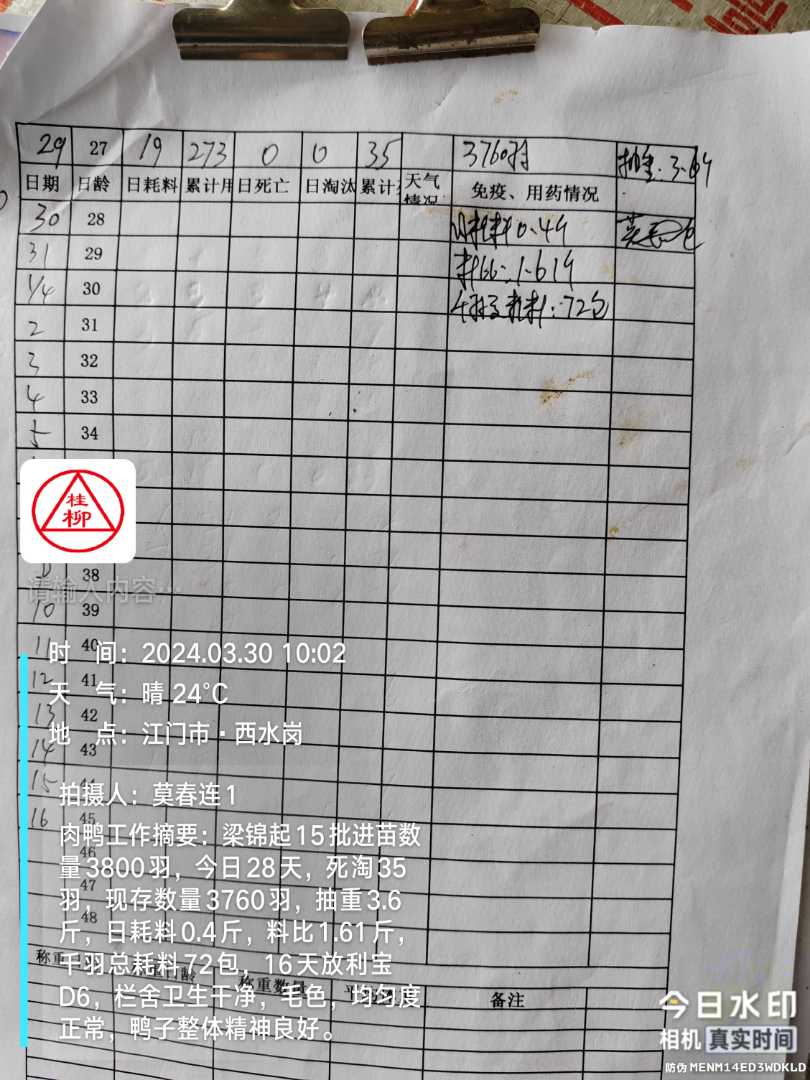 29 27 19 273 0 0 35 3760羽 抽重:3.6斤
日期 日龄 日耗料 累计用 日死亡 日淘汰 累计 天气情况 免疫、用药情况
30 28 日耗料0.4斤
31 29 料比:1.61斤
1/4 30 千羽总耗料:72包
2 31
3 32
4 33
5 34
桂柳
38
请输入内容…
10 39
11 40
12 41
13 42
14 43
15 44
16 45
46
47
48
时 间：2024.03.30 10:02
天 气：晴 24℃
地 点：江门市·西水岗
拍摄人：莫春连1
肉鸭工作摘要：梁锦起15批进苗数
量3800羽，今日28天，死淘35
羽，现存数量3760羽，抽重3.6
斤，日耗料0.4斤，料比1.61斤，
千羽总耗料72包，16天放利宝
D6，栏舍卫生干净，毛色，均匀度
正常，鸭子整体精神良好。
称重 称重数量 备注
今日水印
相机 真实时间
防伪 MENM14ED3WDKLD